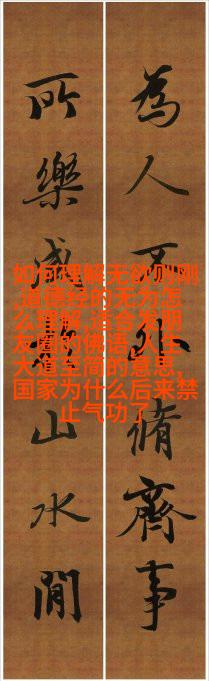 為人不外脩齊事
所樂山水間
如何理解无欲则刚
,道德经的无为怎
么理解,适合发朋
友圈的佛语,人生
大道至简的意思,
国家为什么后来禁
止气功了